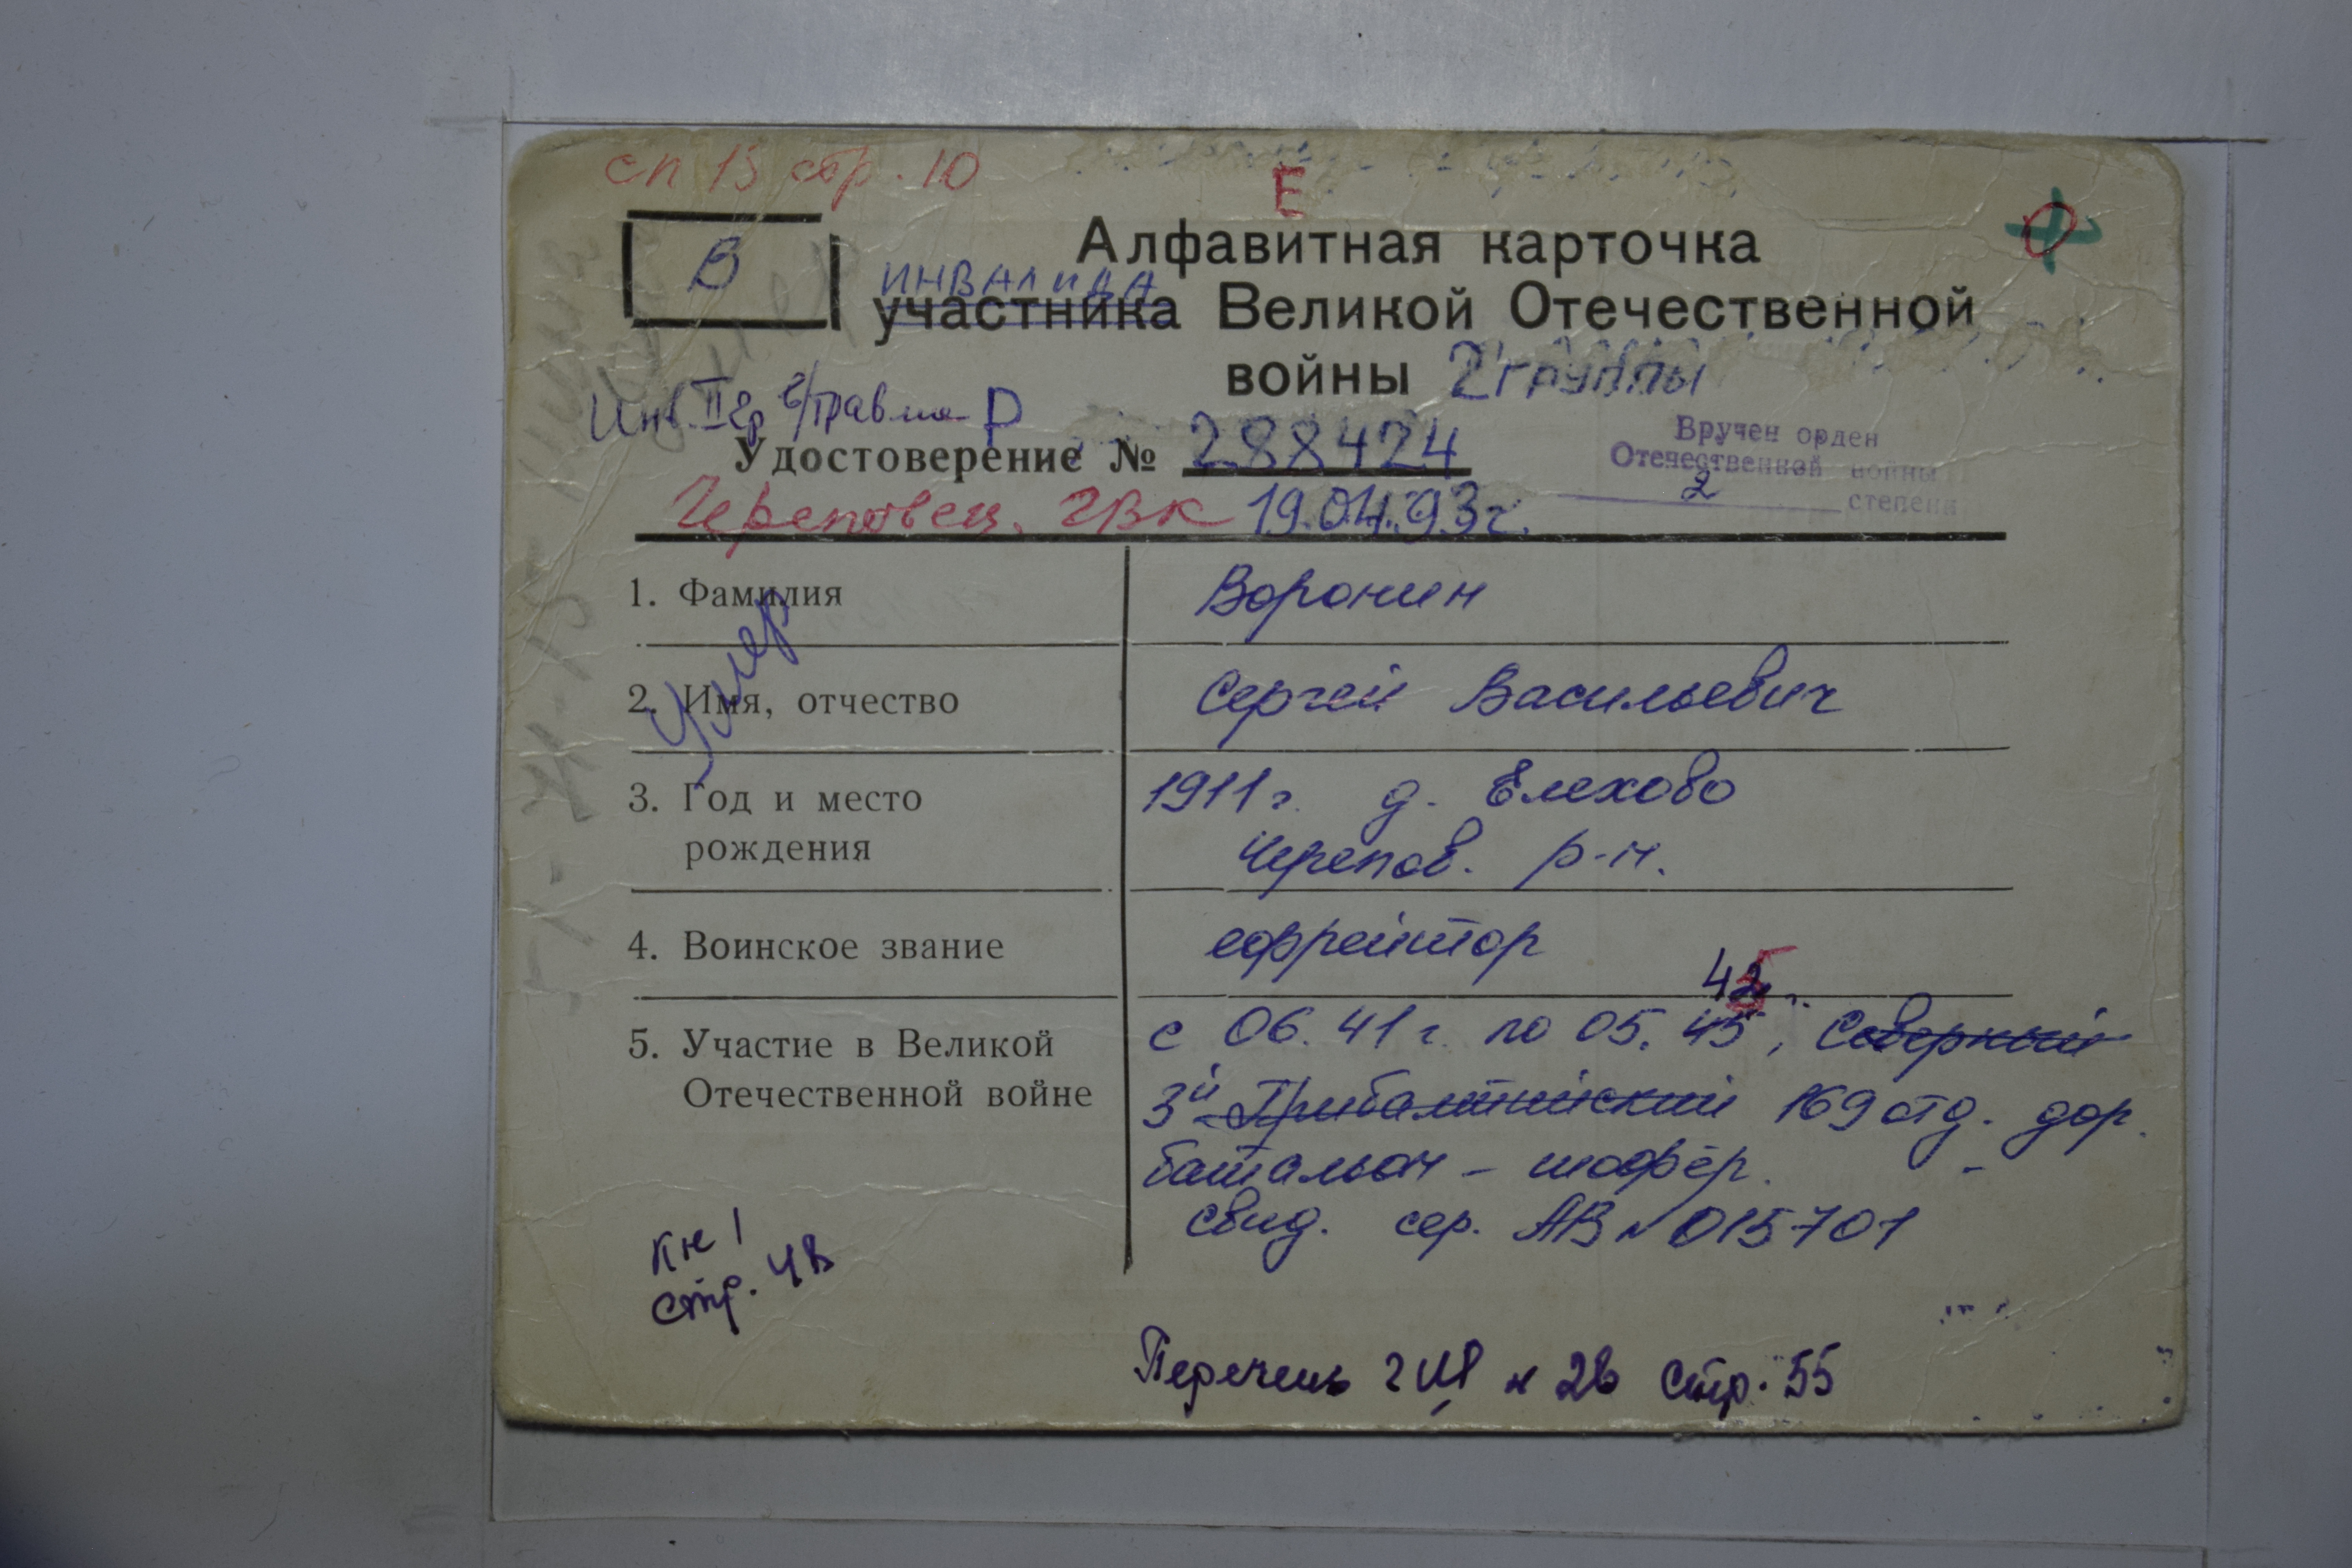 сп 15 стр. 10
Е
В
Алфавитная карточка
инвалида
участника Великой Отечественной
войны 2 группы
Инв. II гр в/травма Р
Удостоверение № 288424
Вручен орден
Отечественной войны
2 степени
Черептвец. ГВК 19.04.93г.
1. Фамилия Воронин
Умер
2. Имя, отчество Сергей Васильевич
3. Год и место 1911г. д. Елехово
рождения Черепов. р-н.
4. Воинское звание ефрейтор
5. Участие в Великой с 06.41г. по 05.45, Северный
Отечественной войне 3й Прибалтийский 169 отд. дор.
батальон - шофёр.
свид. сер. АВ № 015701
Кн 1
стр. 48
Перечень стр. 55